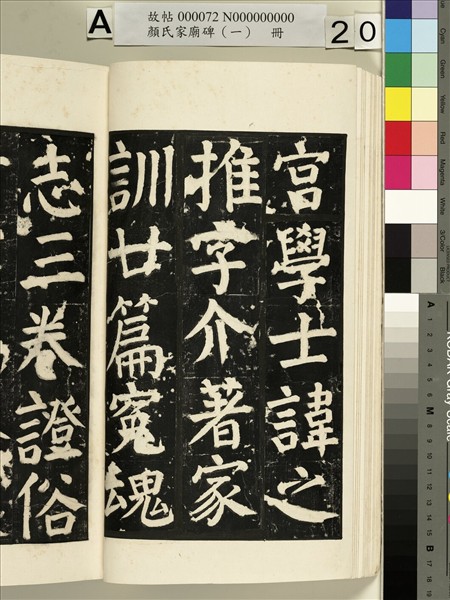 故帖 000072 N000000000
顏氏家廟碑（一） 冊
A
20
宮學士諱之
推字介著家
訓廿篇冤魂
志三卷證俗
Cyan
Green
Yellow
Red
Magenta
White
3/Color
Black
A
1
2
3
4
5
6
M
8
9
10
11
12
13
14
15
B
17
18
19